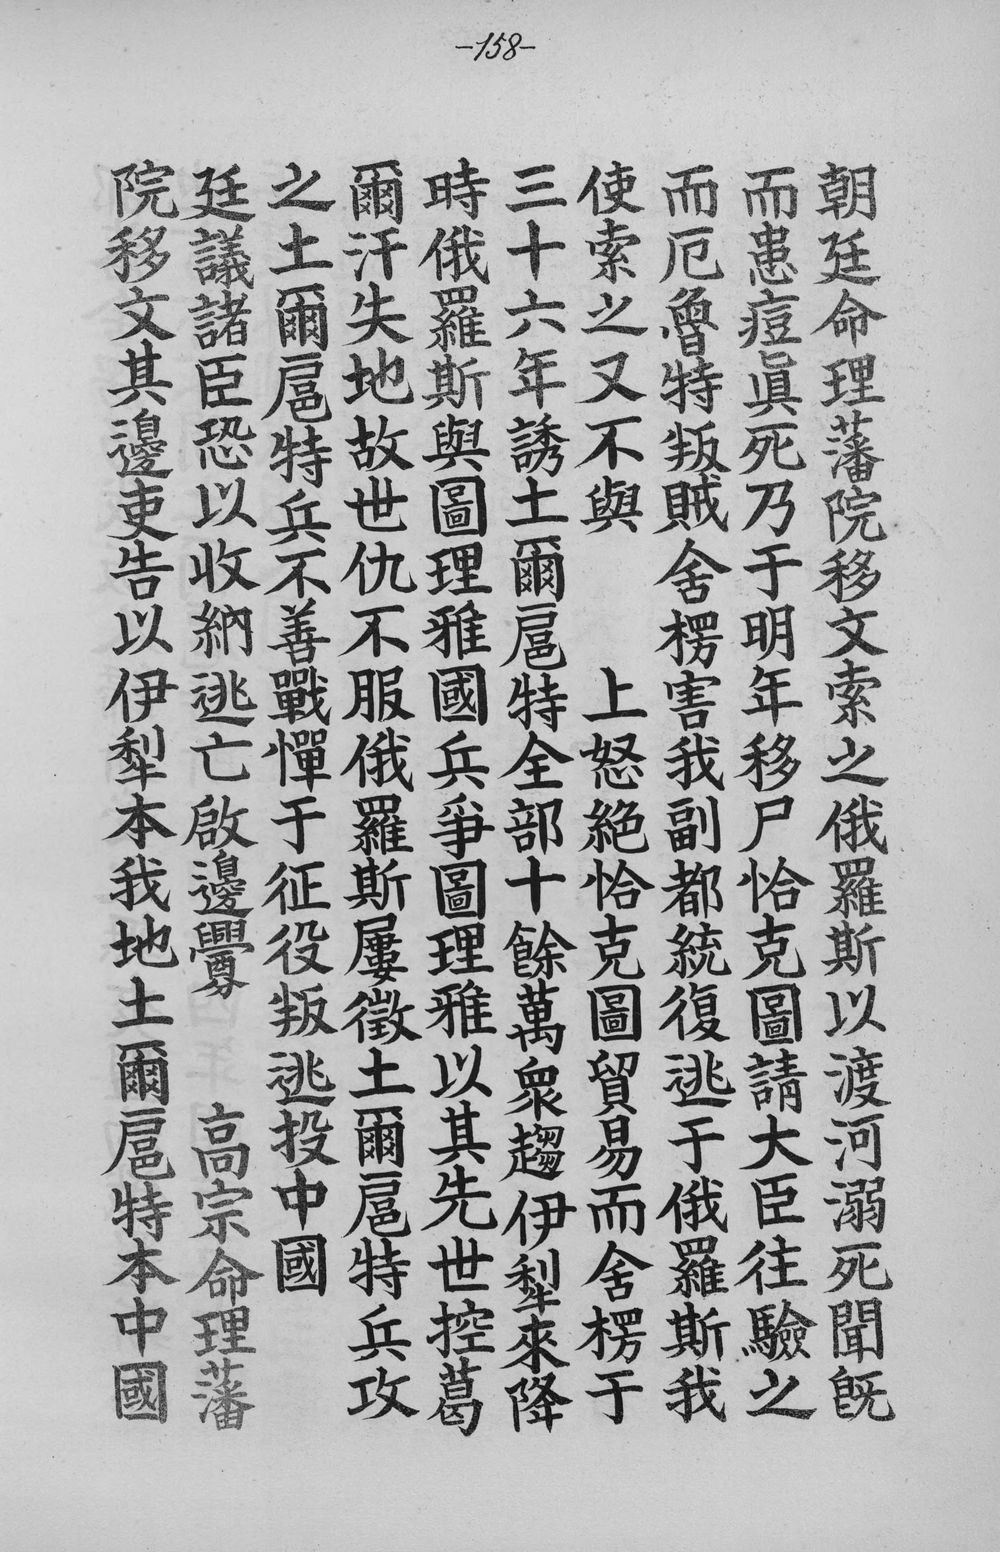 -158-
朝廷命理藩院移文索之俄羅斯以渡河溺死聞旣
而患痘眞死乃于明年移尸恰克圖請大臣往驗之
而厄魯特叛賊舍楞害我副都統復逃于俄羅斯我
使索之又不與　上怒絶恰克圖貿易而舍楞于
三十六年誘土爾扈特全部十餘萬衆趨伊犁來降
時俄羅斯與圖理雅國兵爭圖理雅以其先世控葛
爾汗失地故世仇不服俄羅斯屢徵土爾扈特兵攻
之土爾扈特兵不善戰憚于征役叛逃投中國
廷議諸臣恐以收納逃亡啟邊釁　高宗命理藩
院移文其邊吏告以伊犁本我地土爾扈特本中國